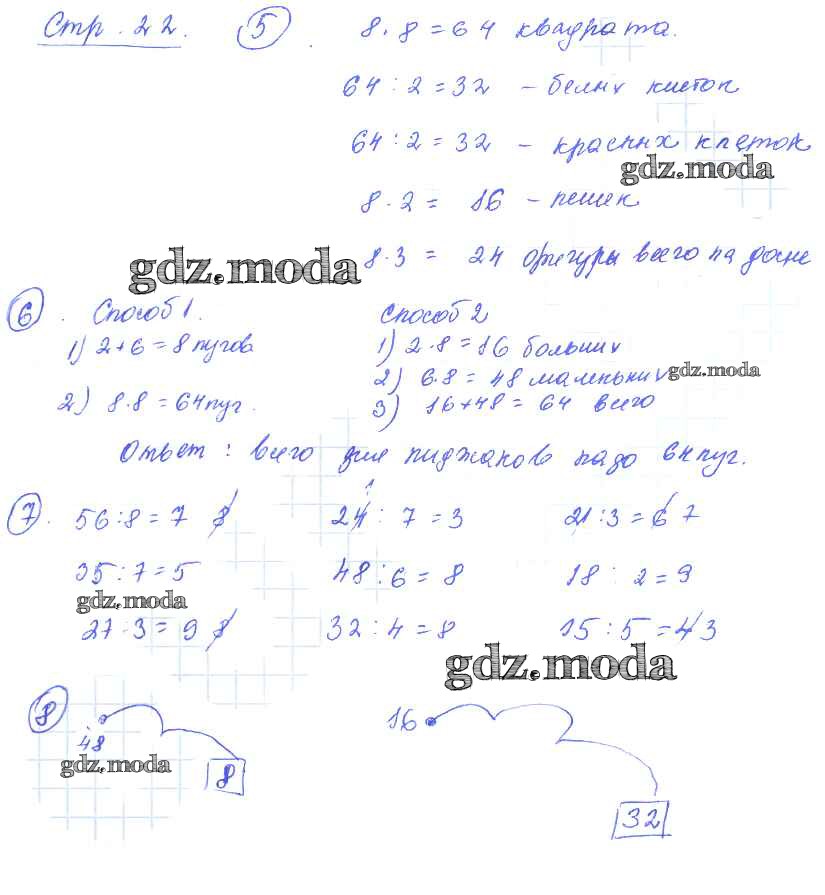 Стр. 22. 5. 8 · 8 = 64 квадрата.
64 : 2 = 32 – белых клеток
64 : 2 = 32 – красных клеток
gdz.moda
8 · 2 = 16 – пешек
8 · 3 = 24 фигуры всего на доске
gdz.moda
6. Способ 1.
1) 2 + 6 = 8 пугов
2) 8 · 8 = 64 пуг.
Способ 2
1) 2 · 8 = 16 больших
2) 6 · 8 = 48 маленьких
gdz.moda
3) 16 + 48 = 64 всего
Ответ: всего для пиджаков надо 64 пуг.
7. 56 : 8 = 7 24 : 7 = 3 21 : 3 = 7
35 : 7 = 5 48 : 6 = 8 18 : 2 = 9
gdz.moda
27 : 3 = 9 32 : 4 = 8 15 : 5 = 3
gdz.moda
8 48 8
gdz.moda
16 32